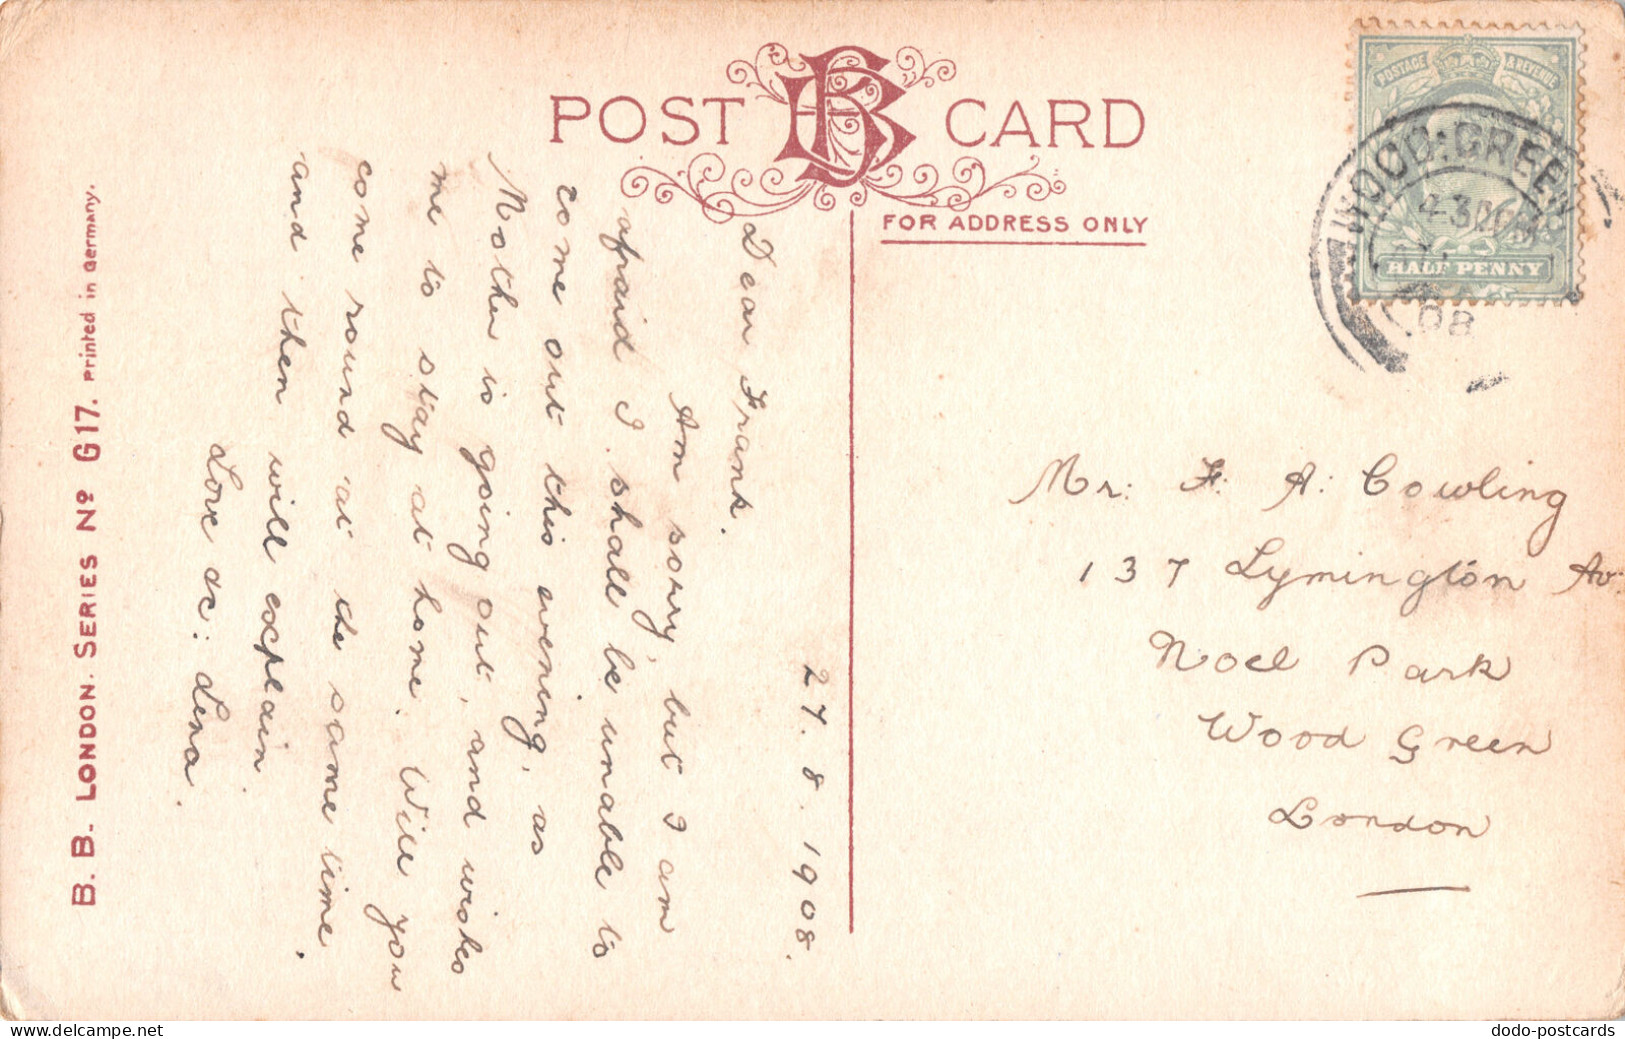 POST BB CARD
FOR ADDRESS ONLY
POSTAGE & REVENUE
HALF PENNY
WOOD·GREEN
4-30PM
08
27.8.1908.
Dear Frank.
Am sorry, but I am
afraid I shall be unable to
come out this evening, as
Mother is going out, and wishes
me to stay at home. Will you
come round at the same time.
and then will explain.
Love &c: Lena.
Mr: F. A: Cowling
137 Lymington Av:
Noel Park
Wood Green
London
B. B. LONDON. SERIES Nº G17. Printed in Germany.
dodo-postcards